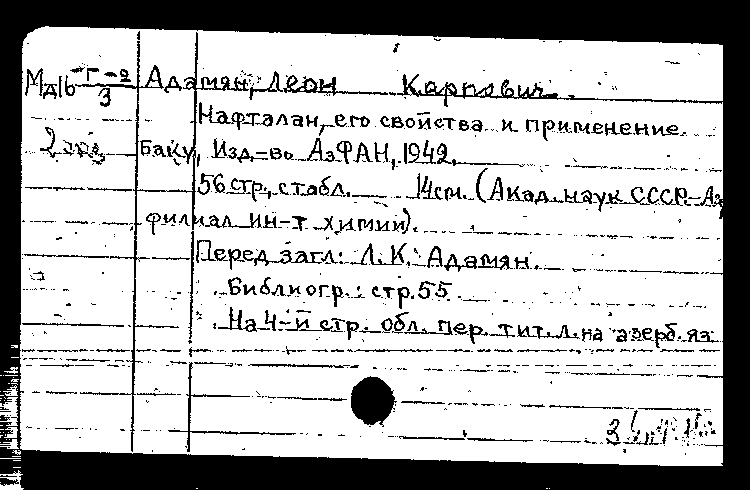 Мд16 -Г-2/3 Адамян, Леон Карпович.
Нафталан, его свойства и применение.
2 экз Баку, Изд-во АзФАН, 1942.
56 стр, с табл. 14 см. (Акад. наук СССР-Аз
филиал ин-т химии).
Перед загл: Л. К. Адамян.
Библиогр.: стр. 55
На 4-й стр. обл. пер. тит. л. на азерб. яз